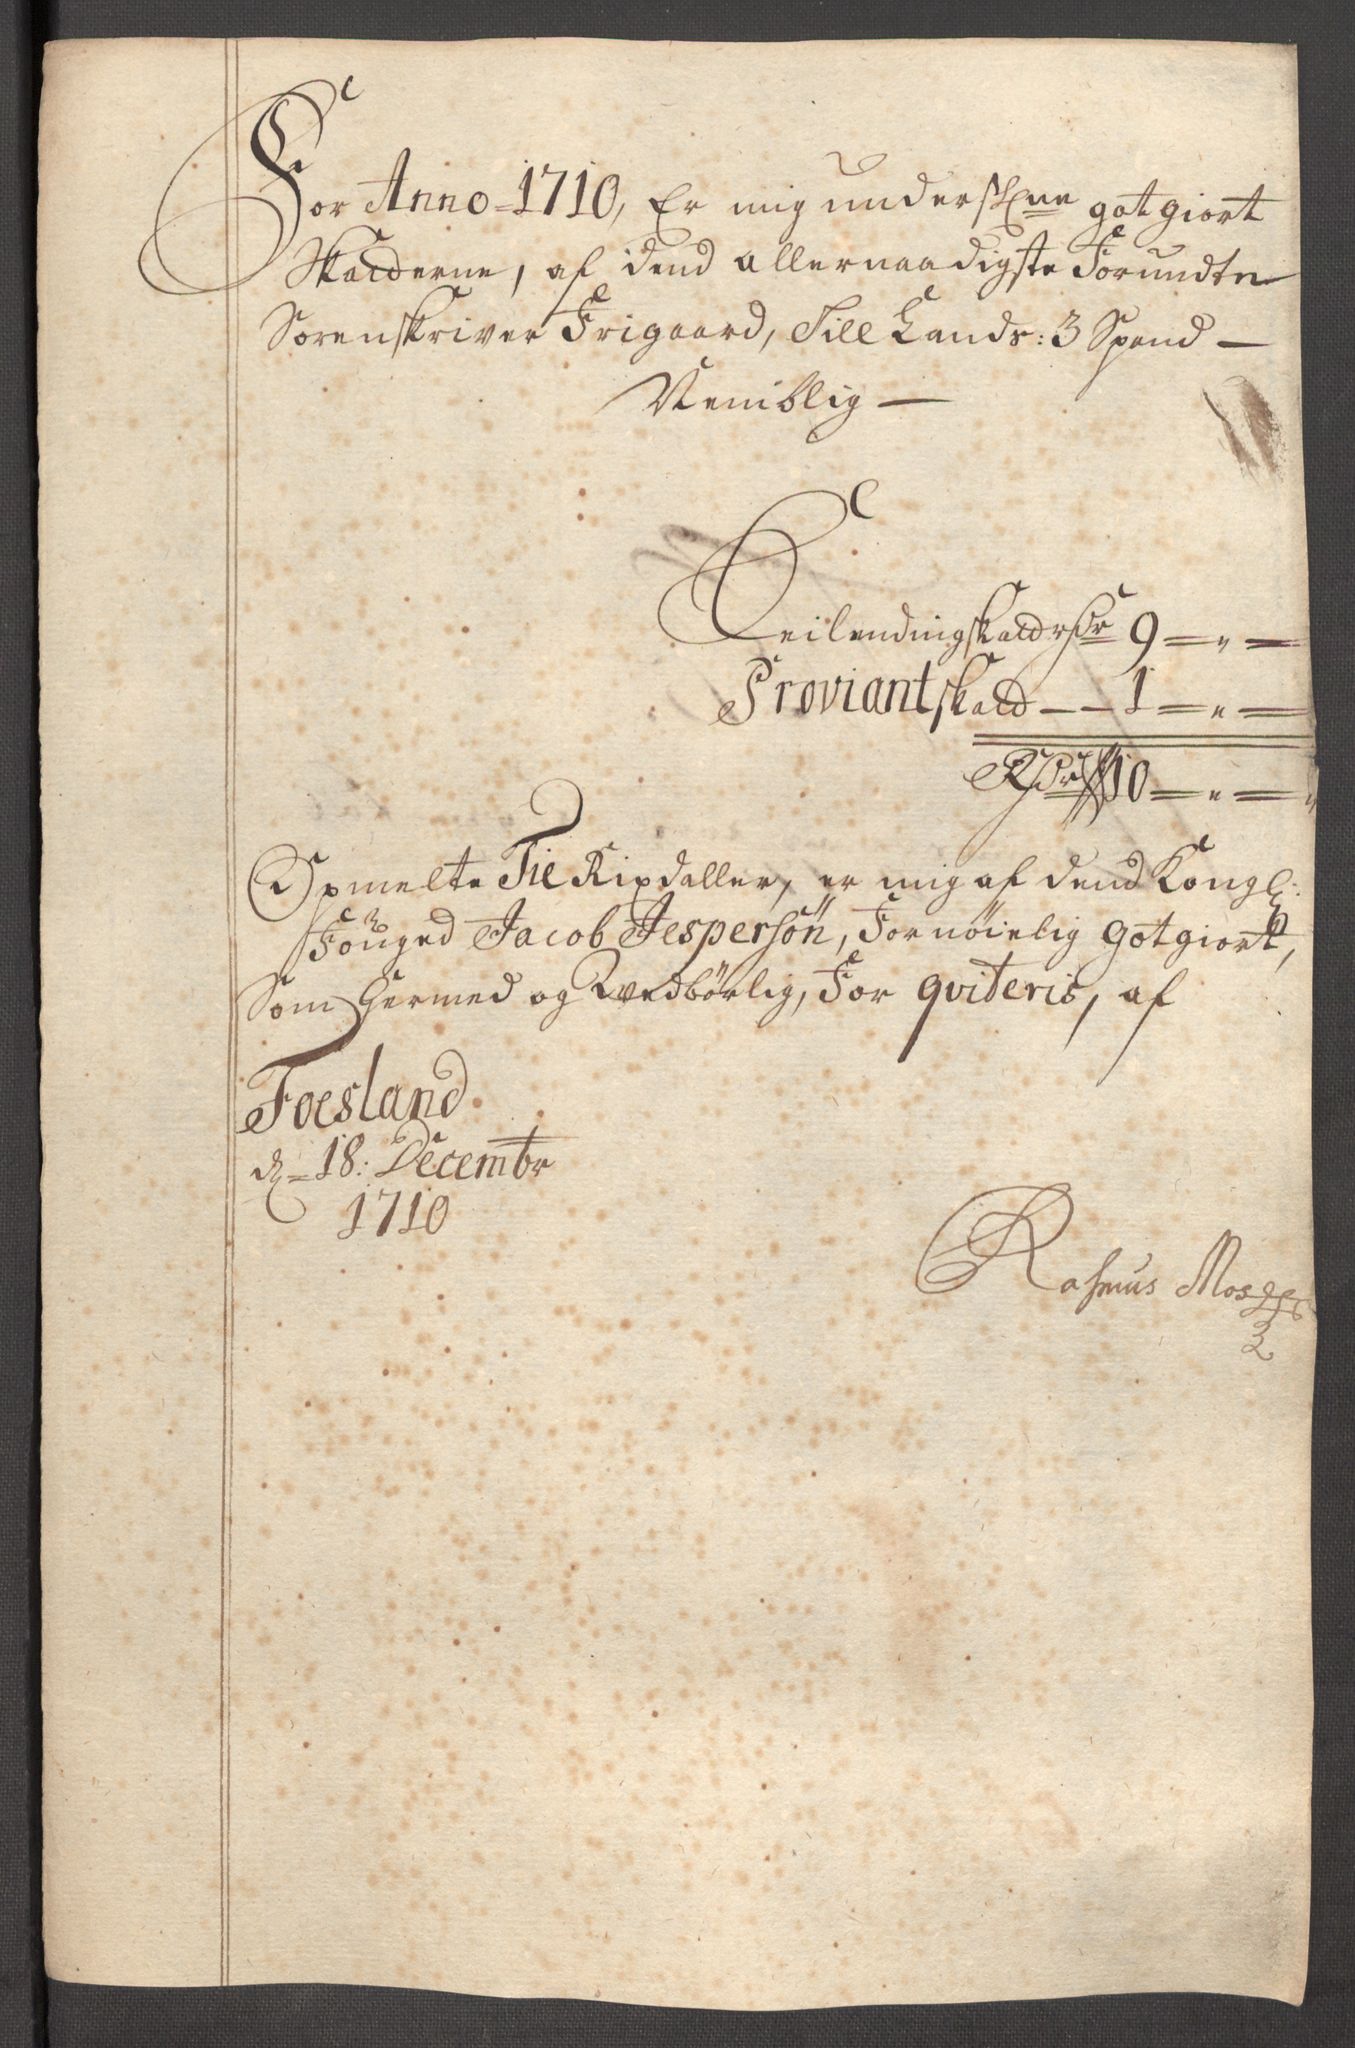 For Anno 1710, Er mig underskne got giort
Skatterne, af dend allernaadigste Forundte
Sorenskriver Frigaard, Till Lands: 3 Spand —
Nemblig —
Leilendingskatt rdr 9 — " —
Proviantskatt — — 1 — " —
Rdr 10 — " —
Opmelte Tie Rixdaller, er mig af dend Kongl:
Fouged Jacob Jespersön, Fornöielig gotgiort,
Som hermed og vedbörlig, For qviteris, af
Foesland
d. 18: Decembr
1710
Rasmus